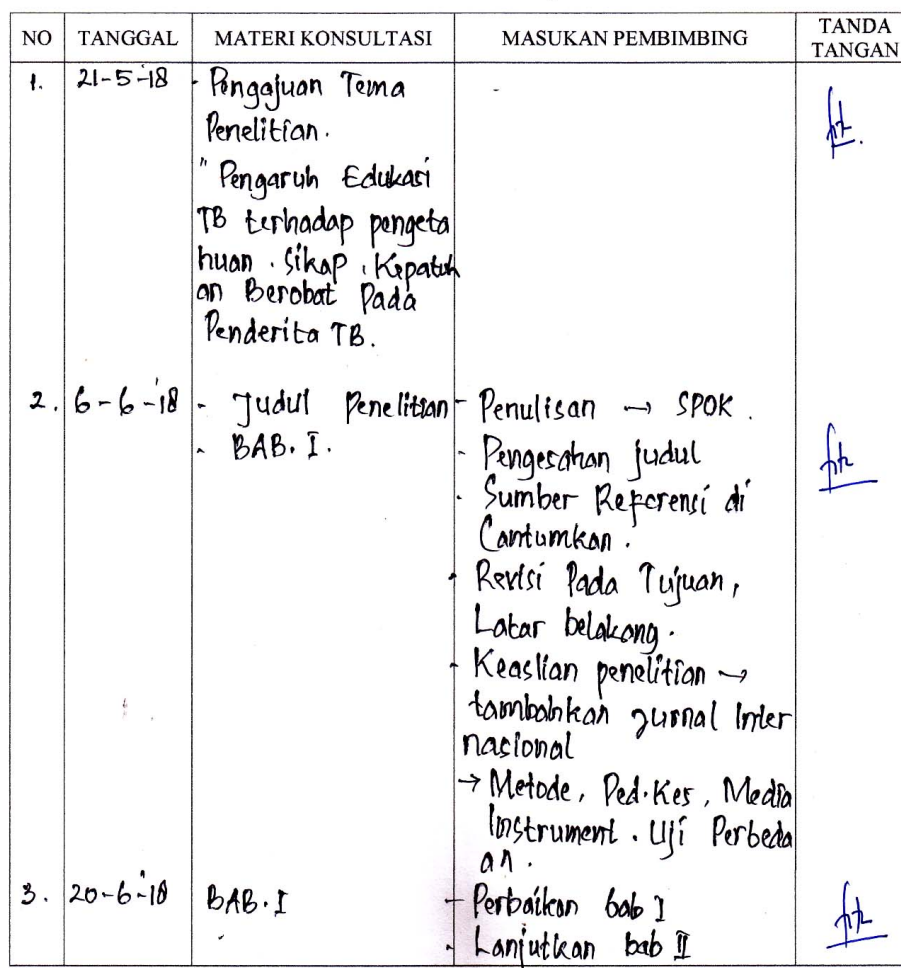 NO TANGGAL MATERI KONSULTASI MASUKAN PEMBIMBING TANDA TANGAN
1. 21-5-18 - Pengajuan Tema -
Penelitian.
" Pengaruh Edukasi
TB terhadap pengeta
huan . Sikap , Kepatuh
an Berobat Pada
Penderita TB.
2. 6-6-18 - Judul Penelitian - Penulisan → SPOK .
- BAB. I. - Pengesahan judul
- Sumber Referensi di
Cantumkan .
- Revisi Pada Tujuan,
Latar belakang .
- Keaslian penelitian →
tambahkan Jurnal Inter
nasional
→ Metode, Ped.Kes, Media
Instrument . Uji Perbeda
an .
3. 20-6-18 BAB. I - Perbaikan bab I
- Lanjutkan bab II